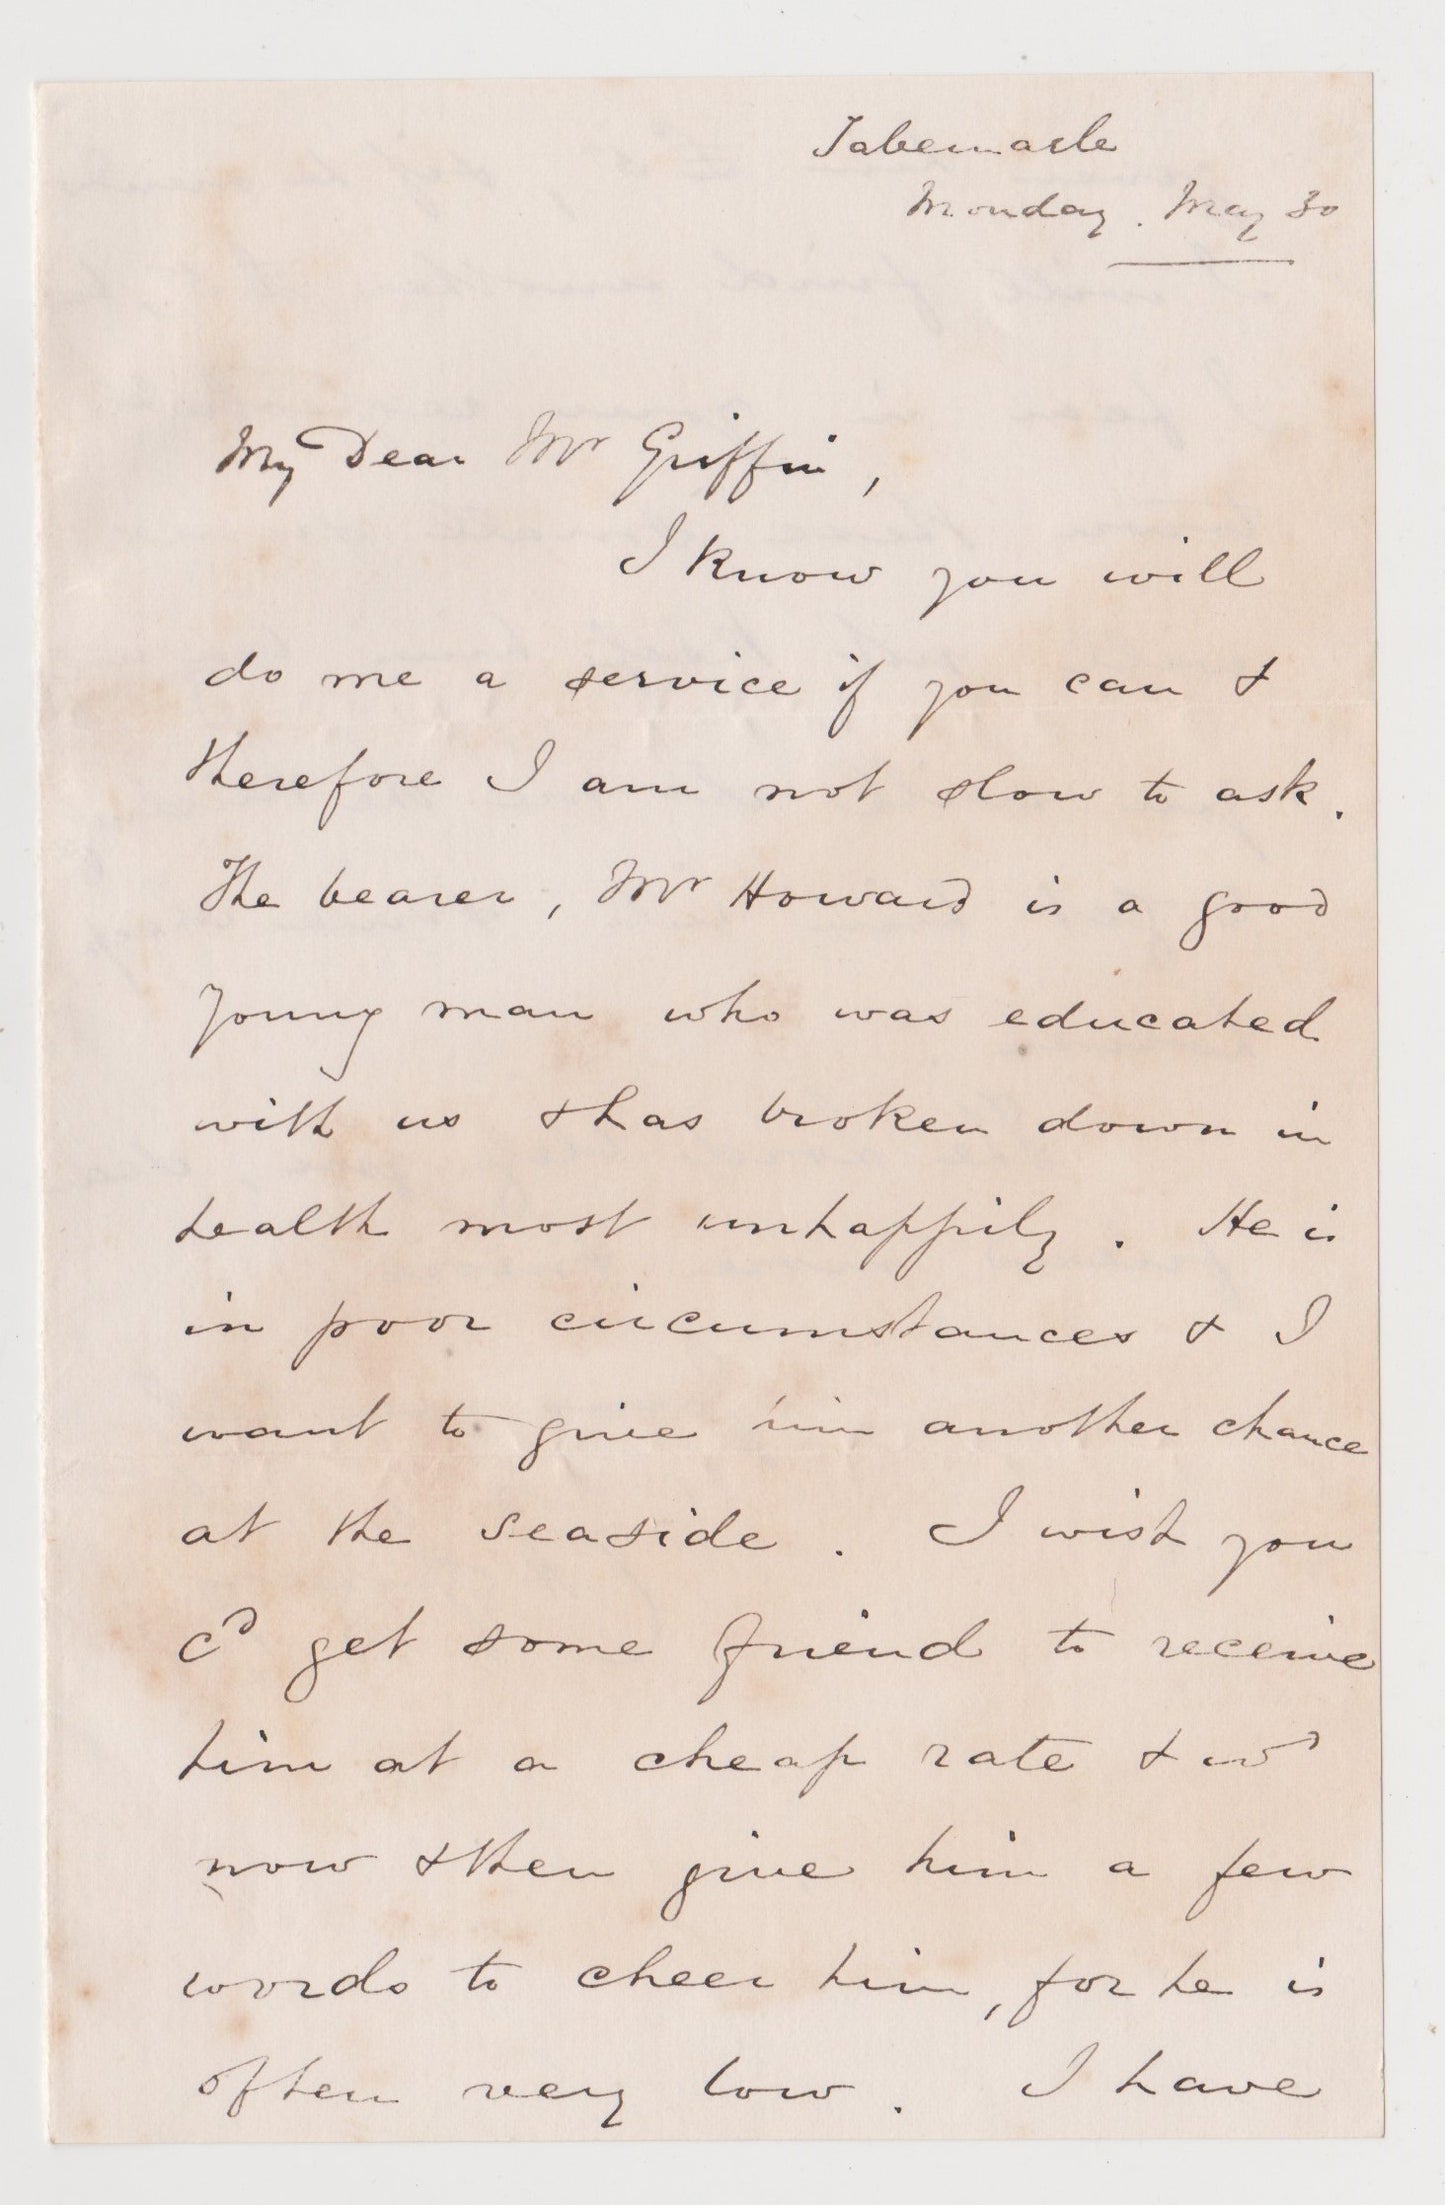 Tabernacle
Monday. May 30
My Dear Mr Griffin,
I know you will
do me a service if you can &
therefore I am not slow to ask.
The bearer, Mr Howard is a good
young man who was educated
with us & has broken down in
health most unhappily. He is
in poor circumstances & I
want to give him another chance
at the seaside. I wish you
cd get some friend to receive
him at a cheap rate & wd
now & then give him a few
words to cheer him, for he is
often very low. I have